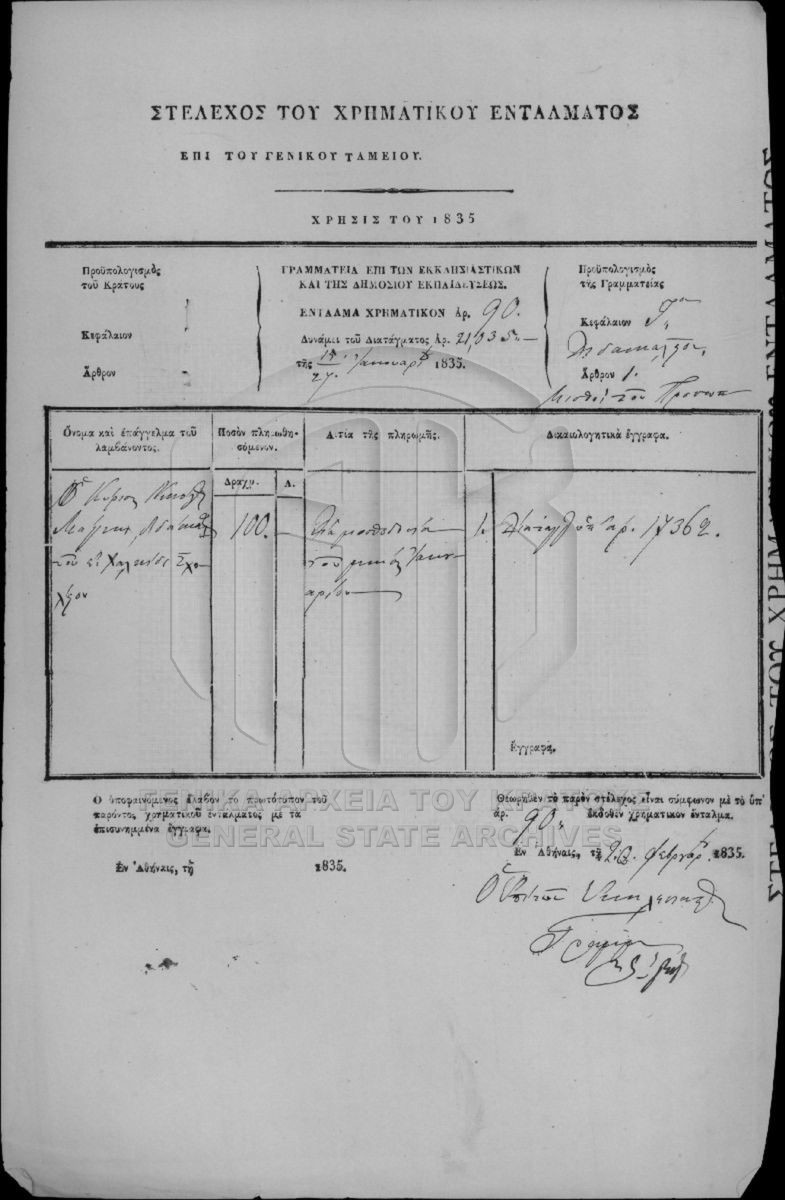 ΣΤΕΛΕΧΟΣ ΤΟΥ ΧΡΗΜΑΤΙΚΟΥ ΕΝΤΑΛΜΑΤΟΣ
ΕΠΙ ΤΟΥ ΓΕΝΙΚΟΥ ΤΑΜΕΙΟΥ.
ΧΡΗΣΙΣ ΤΟΥ 1835
Προϋπολογισμὸς
τοῦ Κράτους
Κεφάλαιον
Ἄρθρον
ΓΡΑΜΜΑΤΕΙΑ ΕΠΙ ΤΩΝ ΕΚΚΛΗΣΙΑΣΤΙΚΩΝ
ΚΑΙ ΤΗΣ ΔΗΜΟΣΙΟΥ ΕΚΠΑΙΔΕΥΣΕΩΣ.
ΕΝΤΑΛΜΑ ΧΡΗΜΑΤΙΚΟΝ ἀρ. 90.
Δυνάμει τοῦ Διατάγματος ἀρ. 21,035
τῆς 15/27 Ἰανουαρ 1835.
Προϋπολογισμὸς
τῆς Γραμματείας
Κεφάλαιον Γον
Ἄρθρον 1.
Μισθοὶ τοῦ
Ὄνομα καὶ ἐπάγγελμα τοῦ
λαμβάνοντος.
Ποσὸν πληρωθη-
σόμενον.
Αἰτία τῆς πληρωμῆς.
Δικαιολογητικὰ ἔγγραφα.
Δραχμ.
Λ.
Ὁ Κύριος
τοῦ ἐν Χαλκίδι Σχο
100.
Διὰ μισθοδοσίαν
τοῦ μηνὸς Ἰανου
αρίου
1. ἀρ. 17362.
Ἔγγραφα.
Ο ὑποφαινόμενος ἔλαβον τὸ πρωτότυπον τοῦ
παρόντος χρηματικοῦ ἐντάλματος μὲ τὰ
ἐπισυνημμένα ἔγγραφα.
Ἐν Ἀθήναις, τῇ 1835.
Θεωρηθὲν τὸ παρὸν στέλεχος εἶναι σύμφωνον μὲ τὸ ὑπ'
ἀρ. 90 ἐκδοθὲν χρηματικὸν ἔνταλμα.
Ἐν Ἀθήναις, τῇ Φεβρουαρ. 1835.
ΓΕΝΙΚΑ ΑΡΧΕΙΑ ΤΟΥ ΚΡΑΤΟΥΣ
GENERAL STATE ARCHIVES
ΣΤΕΛΕΧΟΣ ΤΟΥ ΧΡΗΜΑΤΙΚΟΥ ΕΝΤΑΛΜΑΤΟΣ